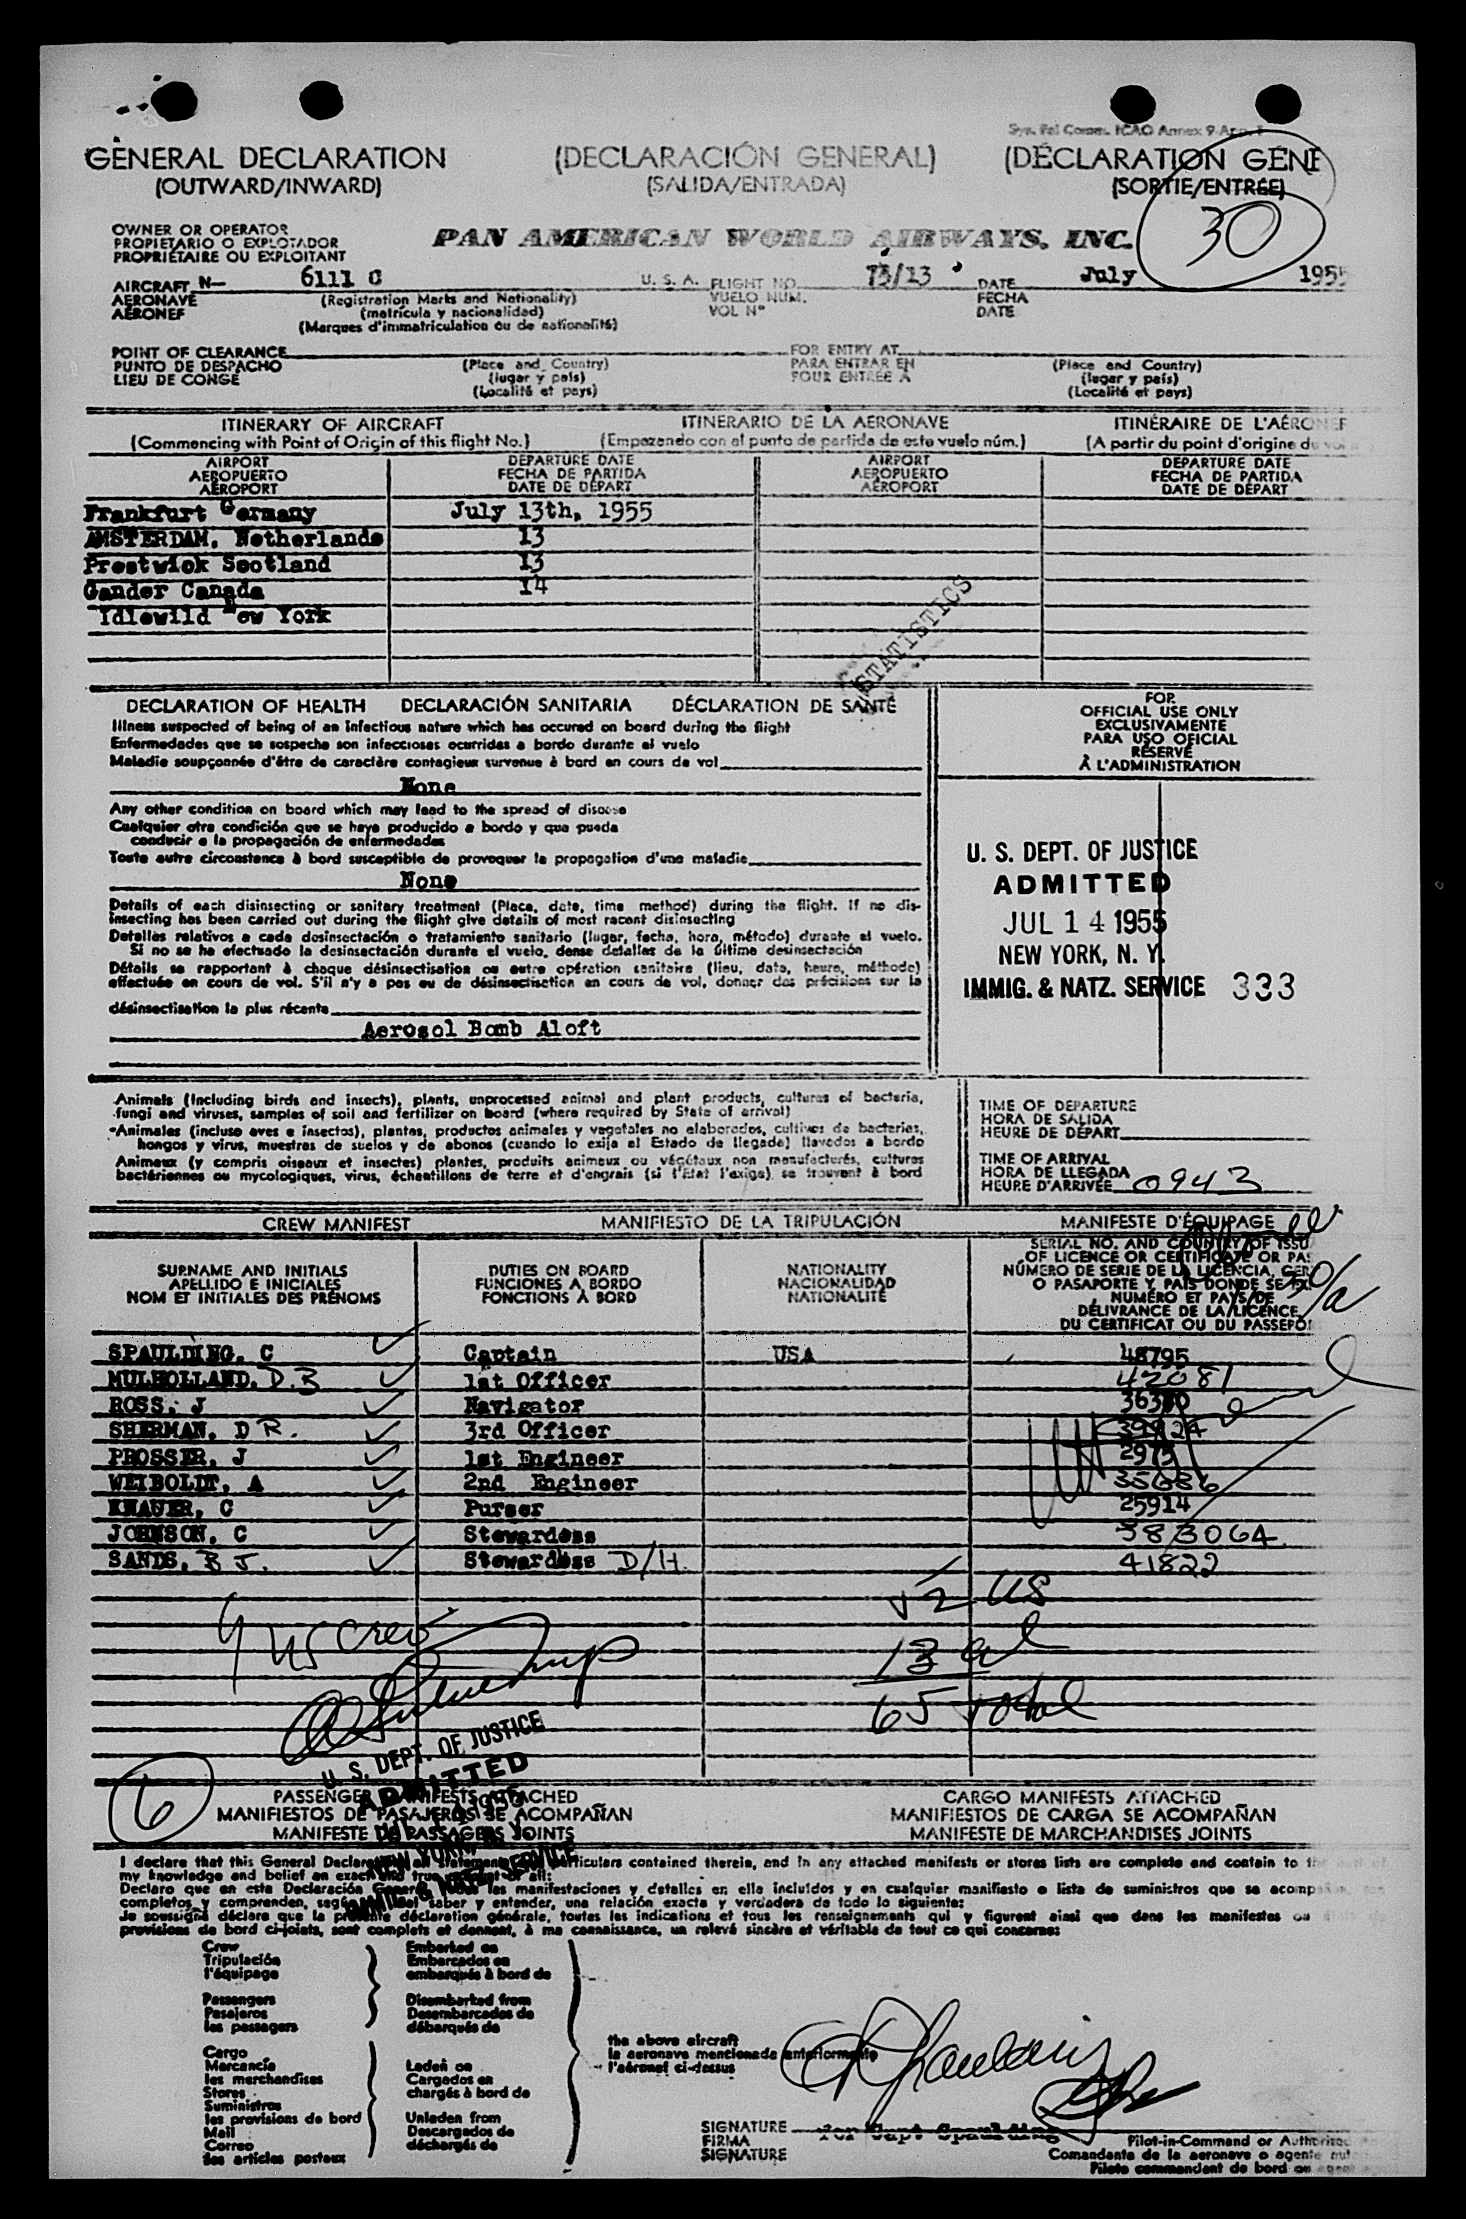 Sys. Fel Comm. ICAO Annex 9 App. 1
GENERAL DECLARATION (DECLARACIÓN GENERAL) (DÉCLARATION GÉNÉ
(OUTWARD/INWARD) (SALIDA/ENTRADA) (SORTIE/ENTRÉE)
30
OWNER OR OPERATOR
PROPIETARIO O EXPLOTADOR
PROPRIÉTAIRE OU EXPLOITANT
PAN AMERICAN WORLD AIRWAYS, INC.
AIRCRAFT N— 6111 C U. S. A. FLIGHT NO. 73/13 DATE July 1955
AERONAVE (Registration Marks and Nationality) VUELO NUM. FECHA
AÉRONEF (matrícula y nacionalidad) VOL Nº DATE
(Marques d'immatriculation ou de nationalité)
POINT OF CLEARANCE FOR ENTRY AT
PUNTO DE DESPACHO (Place and Country) PARA ENTRAR EN (Place and Country)
LIEU DE CONGÉ (lugar y país) POUR ENTRÉE À (lugar y país)
(Localité et pays) (Localité et pays)
ITINERARY OF AIRCRAFT ITINERARIO DE LA AERONAVE ITINÉRAIRE DE L'AÉRONEF
(Commencing with Point of Origin of this flight No.) (Empezando con el punto de partida de este vuelo núm.) (A partir du point d'origine du vol
AIRPORT DEPARTURE DATE AIRPORT DEPARTURE DATE
AEROPUERTO FECHA DE PARTIDA AEROPUERTO FECHA DE PARTIDA
AÉROPORT DATE DE DÉPART AÉROPORT DATE DE DÉPART
Frankfurt Germany July 13th, 1955
AMSTERDAM, Netherlands 13
Prestwick Scotland 13
Gander Canada 14
Idlewild New York
STATISTICS
DECLARATION OF HEALTH DECLARACIÓN SANITARIA DÉCLARATION DE SANTÉ
Illness suspected of being of an infectious nature which has occured on board during the flight
Enfermedades que se sospecha son infecciosas ocurridas a bordo durante el vuelo
Maladie soupçonnée d'être de caractère contagieux survenue à bord en cours de vol
None
Any other condition on board which may lead to the spread of disease
Cualquier otra condición que se haya producido a bordo y que pueda
conducir a la propagación de enfermedades
Toute autre circonstance à bord susceptible de provoquer la propagation d'une maladie
None
Details of each disinsecting or sanitary treatment (Place, date, time method) during the flight. If no dis-
insecting has been carried out during the flight give details of most recent disinsecting
Detalles relativos a cada desinsectación o tratamiento sanitario (lugar, fecha, hora, método) durante el vuelo.
Si no se ha efectuado la desinsectación durante el vuelo, dense detalles de la última desinsectación
Détails se rapportant à chaque désinsectisation ou autre opération sanitaire (lieu, date, heure, méthode)
effectuée en cours de vol. S'il n'y a pas eu de désinsectisation en cours de vol, donner des précisions sur la
désinsectisation la plus récente
Aerosol Bomb Aloft
FOR
OFFICIAL USE ONLY
EXCLUSIVAMENTE
PARA USO OFICIAL
RÉSERVÉ
À L'ADMINISTRATION
U. S. DEPT. OF JUSTICE
ADMITTED
JUL 14 1955
NEW YORK, N. Y.
IMMIG. & NATZ. SERVICE 333
Animals (Including birds and insects), plants, unprocessed animal and plant products, cultures of bacteria,
fungi and viruses, samples of soil and fertilizer on board (where required by State of arrival)
Animales (incluso aves e insectos), plantas, productos animales y vegetales no elaborados, cultivos de bacterias,
hongos y virus, muestras de suelos y de abonos (cuando lo exija el Estado de llegada) llevados a bordo
Animaux (y compris oiseaux et insectes) plantes, produits animaux ou végétaux non manufacturés, cultures
bactériennes ou mycologiques, virus, échantillons de terre et d'engrais (si l'État l'exige) se trouvant à bord
TIME OF DEPARTURE
HORA DE SALIDA
HEURE DE DÉPART
TIME OF ARRIVAL
HORA DE LLEGADA
HEURE D'ARRIVÉE 0943
CREW MANIFEST MANIFIESTO DE LA TRIPULACIÓN MANIFESTE D'ÉQUIPAGE
SURNAME AND INITIALS
APELLIDO E INICIALES
NOM ET INITIALES DES PRÉNOMS
DUTIES ON BOARD
FUNCIONES A BORDO
FONCTIONS À BORD
NATIONALITY
NACIONALIDAD
NATIONALITÉ
SERIAL NO. AND COUNTRY OF ISSU
OF LICENCE OR CERTIFICATE OR PAS
NÚMERO DE SERIE DE LA LICENCIA, CER
O PASAPORTE Y PAÍS DONDE SE
NUMÉRO ET PAYS DE
DÉLIVRANCE DE LA LICENCE
DU CERTIFICAT OU DU PASSEPO
SPAULDING, C Captain USA 48795
MULHOLLAND, D.B 1st Officer 42081
ROSS, J Navigator
SHERMAN, D R. 3rd Officer 39924
PROSSER, J 1st Engineer 2975
WEIBOLDT, A 2nd Engineer 35686
KNAUER, C Purser 25914
JOHNSON, C Stewardess 383064
SANDS, B J. Stewardess D/H. 41822
9 US Crew
52 US
13 al
65 total
U. S. DEPT. OF JUSTICE
ADMITTED
6
PASSENGER MANIFESTS ATTACHED CARGO MANIFESTS ATTACHED
MANIFIESTOS DE PASAJEROS SE ACOMPAÑAN MANIFIESTOS DE CARGA SE ACOMPAÑAN
MANIFESTE DE PASSAGERS JOINTS MANIFESTE DE MARCHANDISES JOINTS
I declare that this General Declaration all statements particulars contained therein, and in any attached manifests or stores lists are complete and contain to the
my knowledge and belief an exact and true of all:
Declaro que en esta Declaración General las manifestaciones y detalles en ella incluídos y en cualquier manifiesto o lista de suministros que se acomp
completos y comprenden, según saber y entender, una relación exacta y verdadera de todo lo siguiente:
Je soussigné déclare que la présente déclaration générale, toutes les indications et tous les renseignements qui y figurent ainsi que dans les manifestes ou
provisions de bord ci-joints, sont complets et donnent, à ma connaissance, un relevé sincère et véritable de tout ce qui concerne:
Crew
Tripulación
l'équipage
Passengers
Pasajeros
les passagers
Cargo
Mercancía
les marchandises
Stores
Suministros
les provisions de bord
Mail
Correo
les articles postaux
Embarked on
Embarcados en
embarqués à bord de
Disembarked from
Desembarcados de
débarqués de
Laden on
Cargados en
chargés à bord de
Unladen from
Descargados de
déchargés de
the above aircraft
la aeronave mencionada anteriormente
l'aéronef ci-dessus
SIGNATURE for Capt Spaulding
FIRMA
SIGNATURE
Pilot-in-Command or Authorized
Comandante de la aeronave o agente aut
Pilote commandant de bord ou agent